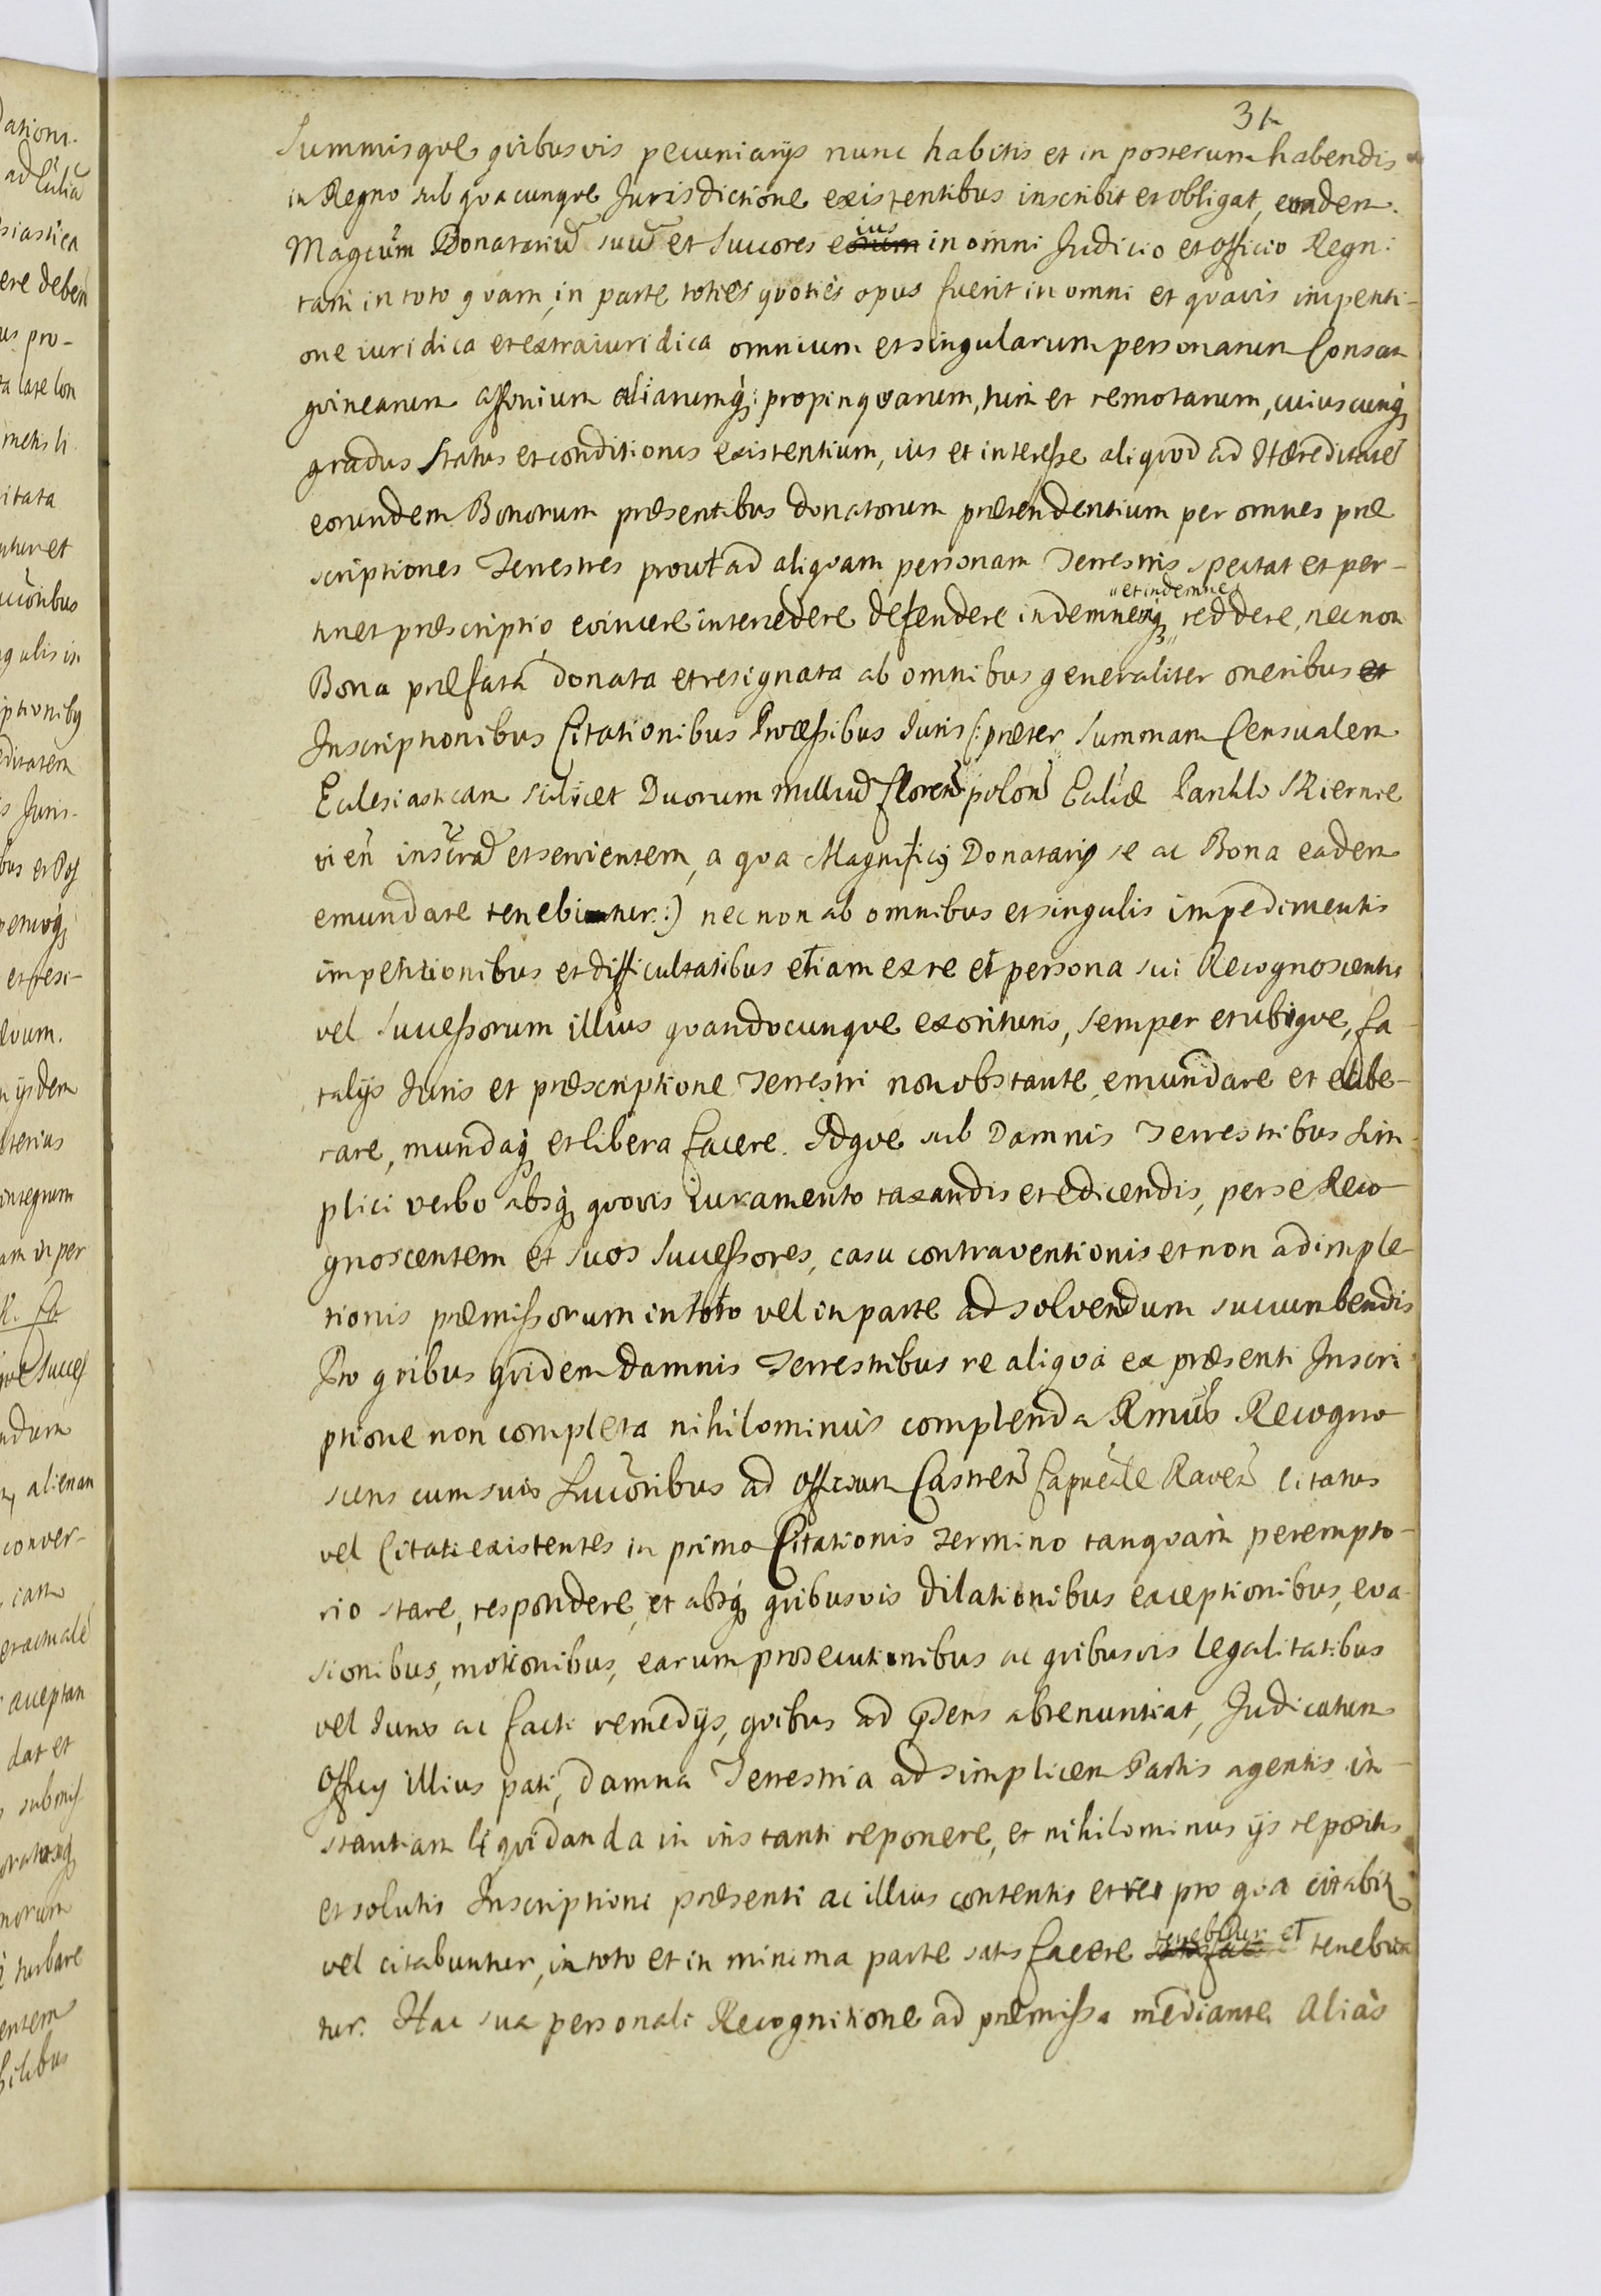 31
Summisque quibusvis pecuniarijs nunc habitis et in posterum habendis
in Regno sub quacunque Jurisdictione existentibus inscribit et obligat, eundem
Magcum Donatariu suu et Succores eorum ius in omni Judicio et Officio Regni
tam in toto quam in parte toties quoties opus fuerit in omni et quavis impeti-
one iuridica et extraiuridica omnium et singularum personarum Consan
guinearum affinium aliarumq; propinquarum, tum et remotarum, cuiuscunq
gradus Status et conditionis existentium, ius et interesse aliquod ad Hæreditate
eorundem Bonorum præsentibus donatorum prætendentium per omnes præ
scriptiones Terrestres prout ad aliquam personam Terrestris spectat et per-
tinet præscriptio, evincere intercedere defendere indemnesq et indemnes reddere, nec non
Bona præfata donata et resignata ab omnibus generaliter oneribus et
Inscriptionibus Citationibus Processibus Juris (: præter Summam Censualem
Ecclesiasticam scilicet Duorum milliu floren polon Ecliæ Parchlo Skiernie
vien inscra et servientem, a qua Magnificq Donatarij se ac Bona eadem
emundare tenebitur :) nec non ab omnibus et singulis impedimentis
impetitionibus et difficultatibus etiam ex re et persona sui Recognoscentis
vel Successorum illius quandocunque exorituris, semper et ubique, fa
talijs Juris et præscriptione Terrestri non obstante, emundare et elibe-
rare, mundaq et libera facere. Idque sub Damnis Terrestribus Sim-
plici verbo absq quovis iuramento taxandis et edicendis, per se Reco
gnoscentem et suos Successores, casu contraventionis et non adimple
tionis præmissorum in toto vel in parte ad solvendum succumbendis
Pro quibus quidem damnis Terrestribus re aliqua ex præsenti Inscri
ptione non completa nihilominus complenda Rmus Recogno
scens cum suis Succoribus ad Officium Castren Capneale Raven citatus
vel Citati existentes in primo Citationis Termino tanquam perempto-
rio stare, respondere, et absq quibusvis dilationibus exceptionibus, eva
sionibus, motionibus, earum prosecutionibus ac quibusvis legalitatibus
vel Juris ac facti remedijs, quibus ad præsens abrenuntiat, Judicatum
Officij illius pati, damna Terrestria ad simplicem Partis agentis in-
stantiam liquidanda in instanti reponere, et nihilominus ijs repositis
et solutis Inscriptioni præsenti ac illius contentis et rei pro qua citabit
vel citabuntur, in toto et in minima parte satis facere tenebitur et tenebun
tur. Hac sua personali Recognitione ad præmissa mediante Alias